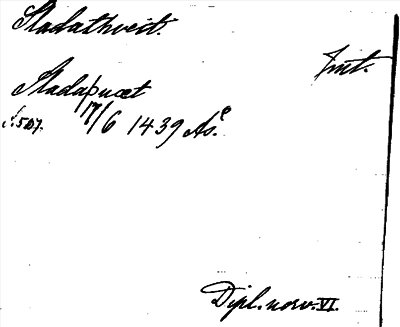 Stadathveit.
Jnt.
Stadaþuæt
s. 507. 17/6 1439 Asº.
Dipl. norv. VI.